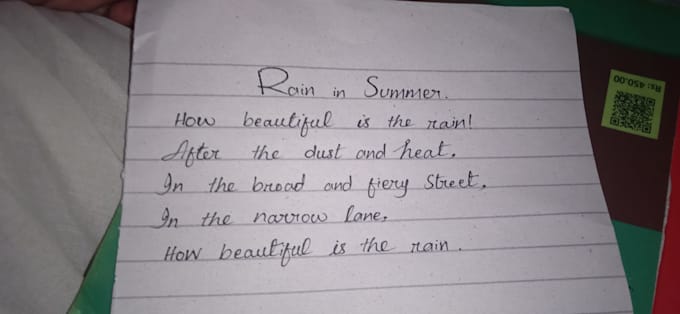 Rain in Summer.
How beautiful is the rain!
After the dust and heat,
In the broad and fiery Street,
In the narrow lane,
How beautiful is the rain.
Rs: 450.00